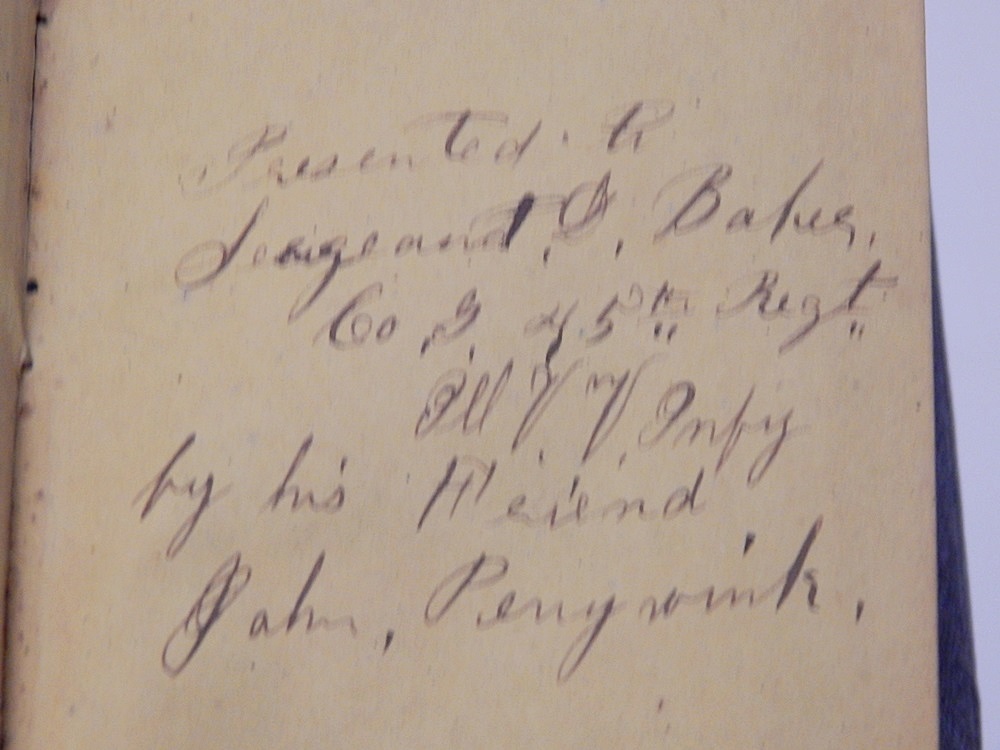 Presented to
Sergeant, D, Baker,
Co, G, 45th Regt
Ill V, V, Infy
by his Friend
John, Perrywink,